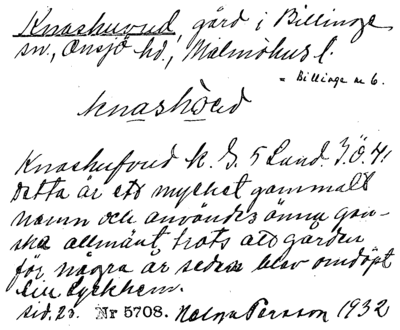 Knashuvud, gård i Billinge
sn, Onsjö hd., Malmöhus l.
= Billinge nr 6.
knashöed
Knashufvud k. G. 5 Lund. I.Ö.4.
Detta är ett mycket gammalt
namn och användes ännu gan-
ska allmänt, trots att gården
för några år sedan blev omdöpt
till Lyckhem.
sid. 23. Nr 5708. Helga Persson 1932